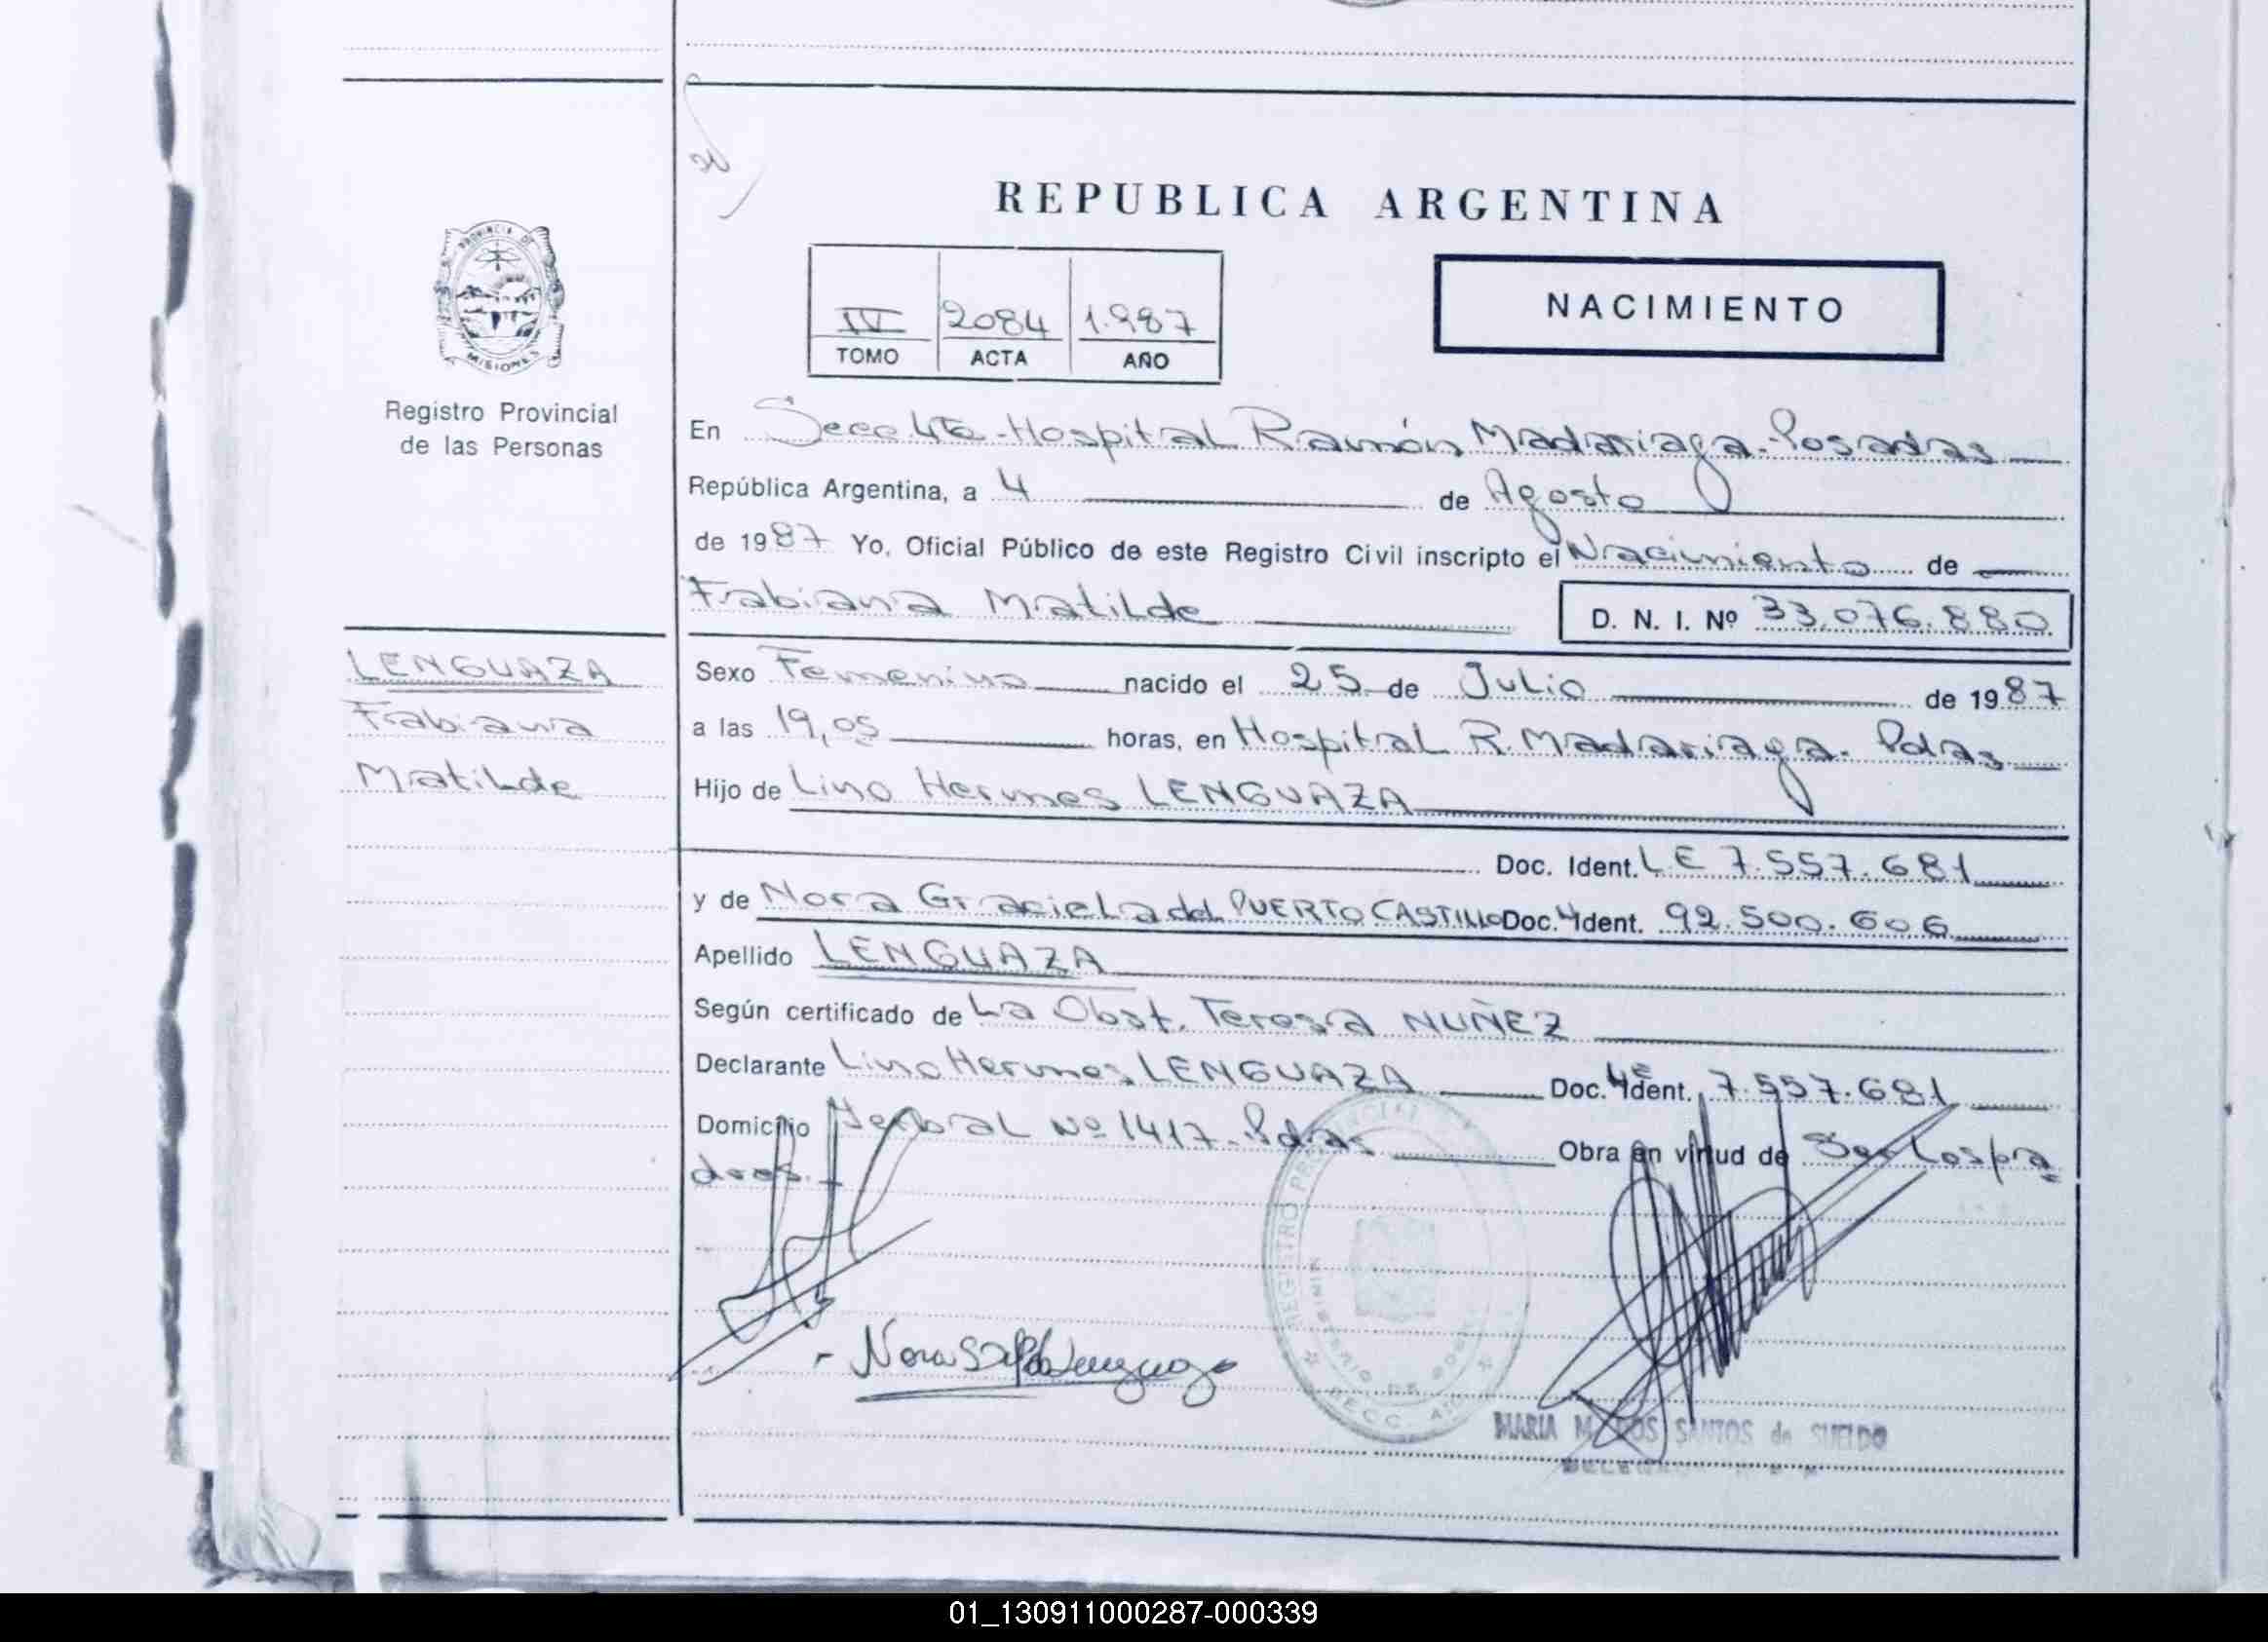 REPUBLICA ARGENTINA
PROVINCIA DE
MISIONES
Registro Provincial
de las Personas
IV 2084 1.987
TOMO ACTA AÑO
NACIMIENTO
En Secc 4ta - Hospital Ramón Madariaga - Posadas
República Argentina, a 4 de Agosto
de 1987 Yo, Oficial Público de este Registro Civil inscripto el Nacimiento de
Fabiana Matilde D. N. I. Nº 33.076.880
LENGUAZA
Fabiana
Matilde
Sexo Femenino nacido el 25 de Julio de 1987
a las 19,05 horas, en Hospital R. Madariaga - Pdas
Hijo de Lino Hermes LENGUAZA
Doc. Ident. L E 7.557.681
y de Nora Graciela del PUERTO CASTILLO Doc. Ident. 92.500.606
Apellido LENGUAZA
Según certificado de La Obst. Teresa NUÑEZ
Declarante Lino Hermes LENGUAZA Doc. Ident. 7.557.681
Domicilio Nº 1417 - Pdas Obra en virtud de Ser Los pa
dres.-
REGISTRO
MARIA M. DOS SANTOS de SUELDO
01_130911000287-000339